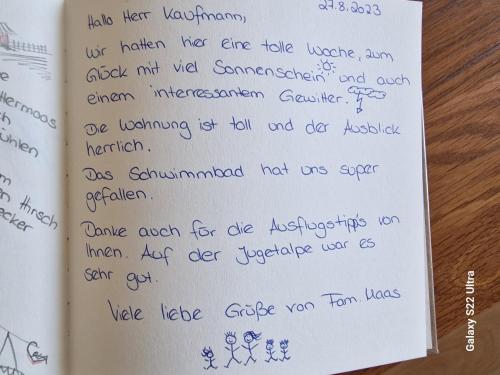 27.8.2023
Hallo Herr Kaufmann,
wir hatten hier eine tolle Woche, zum
Glück mit viel Sonnenschein und auch
einem interressantem Gewitter.
Die Wohnung ist toll und der Ausblick
herrlich.
Das Schwimmbad hat uns super
gefallen.
Danke auch für die Ausflugstipp's von
Ihnen. Auf der Jugetalpe war es
sehr gut.
Viele liebe Grüße von Fam. Haas
Hermaas
ch
ühlen
m
en Hirsch
ecker
Galaxy S22 Ultra